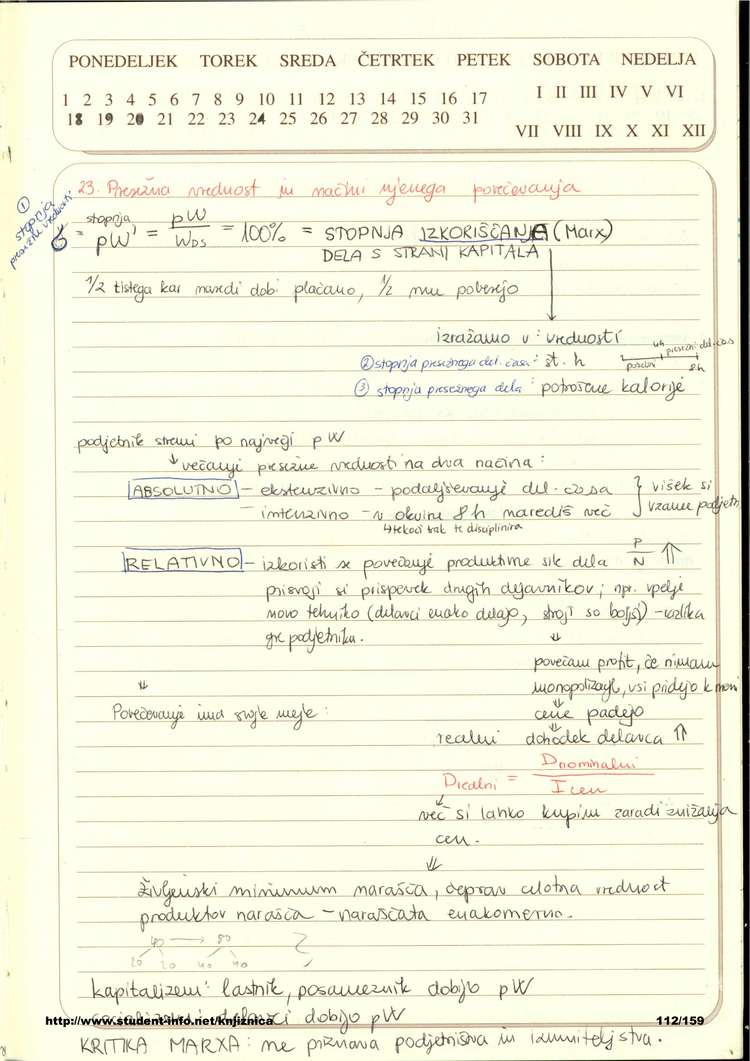 PONEDELJEK TOREK SREDA ČETRTEK PETEK SOBOTA NEDELJA
1 2 3 4 5 6 7 8 9 10 11 12 13 14 15 16 17 I II III IV V VI
18 19 20 21 22 23 24 25 26 27 28 29 30 31 VII VIII IX X XI XII
23. Presežna vrednost in načini njenega povečevanja
① stopnja presežne vrednosti
stopnja pW' = pW / WDS = 100% = STOPNJA IZKORIŠČANJA (Marx)
DELA S STRANI KAPITALA
1/2 tistega kar naredi dobi plačano, 1/2 mu poberejo
izražamo v : vrednosti
② stopnja presežnega del. časa : št. h
4h presežni del. čas
potrebni 8h
③ stopnja presežnega dela : potrošene kalorije
podjetnik stremi po največji pW
↓ večanje presežne vrednosti na dva načina :
ABSOLUTNO – ekstenzivno – podaljševanje del. časa } višek si
– intenzivno – v okviru 8h narediš več vzame podjetn
↳ tekoči trak te disciplinira
RELATIVNO – izkoristi se povečanje produktivne sile dela P/N ⇑
prisvoji si prispevek drugih dejavnikov ; npr. vpelje
novo tehniko (delavci enako delajo, stroji so boljši) – razlika
gre podjetniku.
⇓
povečam profit, če nimam
monopolizacije, vsi pridejo k meni
⇓
cene padejo
⇓
realni dohodek delavca ⇑
⇓
Povečevanje ima svoje meje :
Drealni = Dnominalni / I cen
več si lahko kupim zaradi znižanja
cen.
⇓
življenski minimum narašča, čeprav celotna vrednost
produktov narašča – naraščata enakomerno.
40 → 80
20 20 40 40
kapitalizem : lastnik, posameznik dobijo pW
socializem : delavci dobijo pW
http://www.student-info.net/knjiznica 112/159
KRITIKA MARXA : ne priznava podjetništva in izumiteljstva.